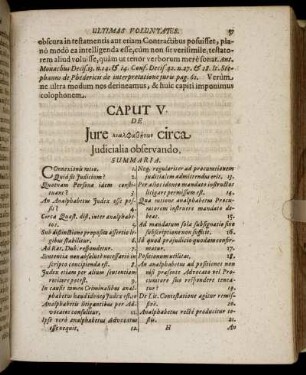 ULTIMAS VOLUNTATES. 57
obscura in testamentis aut etiam Contractibus posuisset, pla-
nò modò ea intelligenda esse, cùm non sit verisimile, testato-
rem aliud voluisse, quàm ut tenor verborum merè sonat. Ant.
Monachus Decis. 13. n. 14. & 24. Conf. Decis. 21. n. 27. & 28. le. Ste-
phanus de Phedericis de interpretatione juris pag. 61. Verùm
ne ultra modum nos detineamus, & huic capiti imponimus
colophonem.
CAPUT V.
DE
Jure circa
Judicialia observando.
SUMMARIA.
Connexionis ratio. 1.
Quid sit Judicium? 2.
Quotnam Persona idem consti-
tuant? 3.
An Analphabetus Judex esse pos-
sit? 4.
Circa Quæst. dist. inter analphabe-
tos. 5.
Sub distinctione proposita assertio le-
gibus stabilitur. 6.
Ad Rat. Dub. respondetur. 7.
Sententia non absolutè necessariò in
scriptis concipienda est. 8.
Judex etiam per alium sententiam
recitare potest. 9.
In causis tamen Criminalibus anal-
phabetus haud idoneus Judex est. 10.
Analphabetis litigantibus per Ad-
vocatos consulitur. 11.
Ipse verò analphabetus Advocatus
esse nequit, 12.
Neq; regulariter ad procurationem
judicialem admittendus erit. 13.
Per aliud tamen mandato instructus
litigare permissum est. 14.
Qua ratione analphabetus Procu-
ratorem instruere mandato de-
beat. 15.
Ad mandatum sola subsignatio sine
subscriptione non sufficit. 16.
Id quod præjudicio quodam confir-
matur. 17.
Positionum utilitas. 18.
An analphabetus ad positiones non
nisi præsente Advocato vel Pro-
curatore suo respondere tenea-
tur? 19.
De Lit. Contestatione agitur remis-
sivè. 20.
Analphabetus rectè producitur te-
stis. 21.
H An